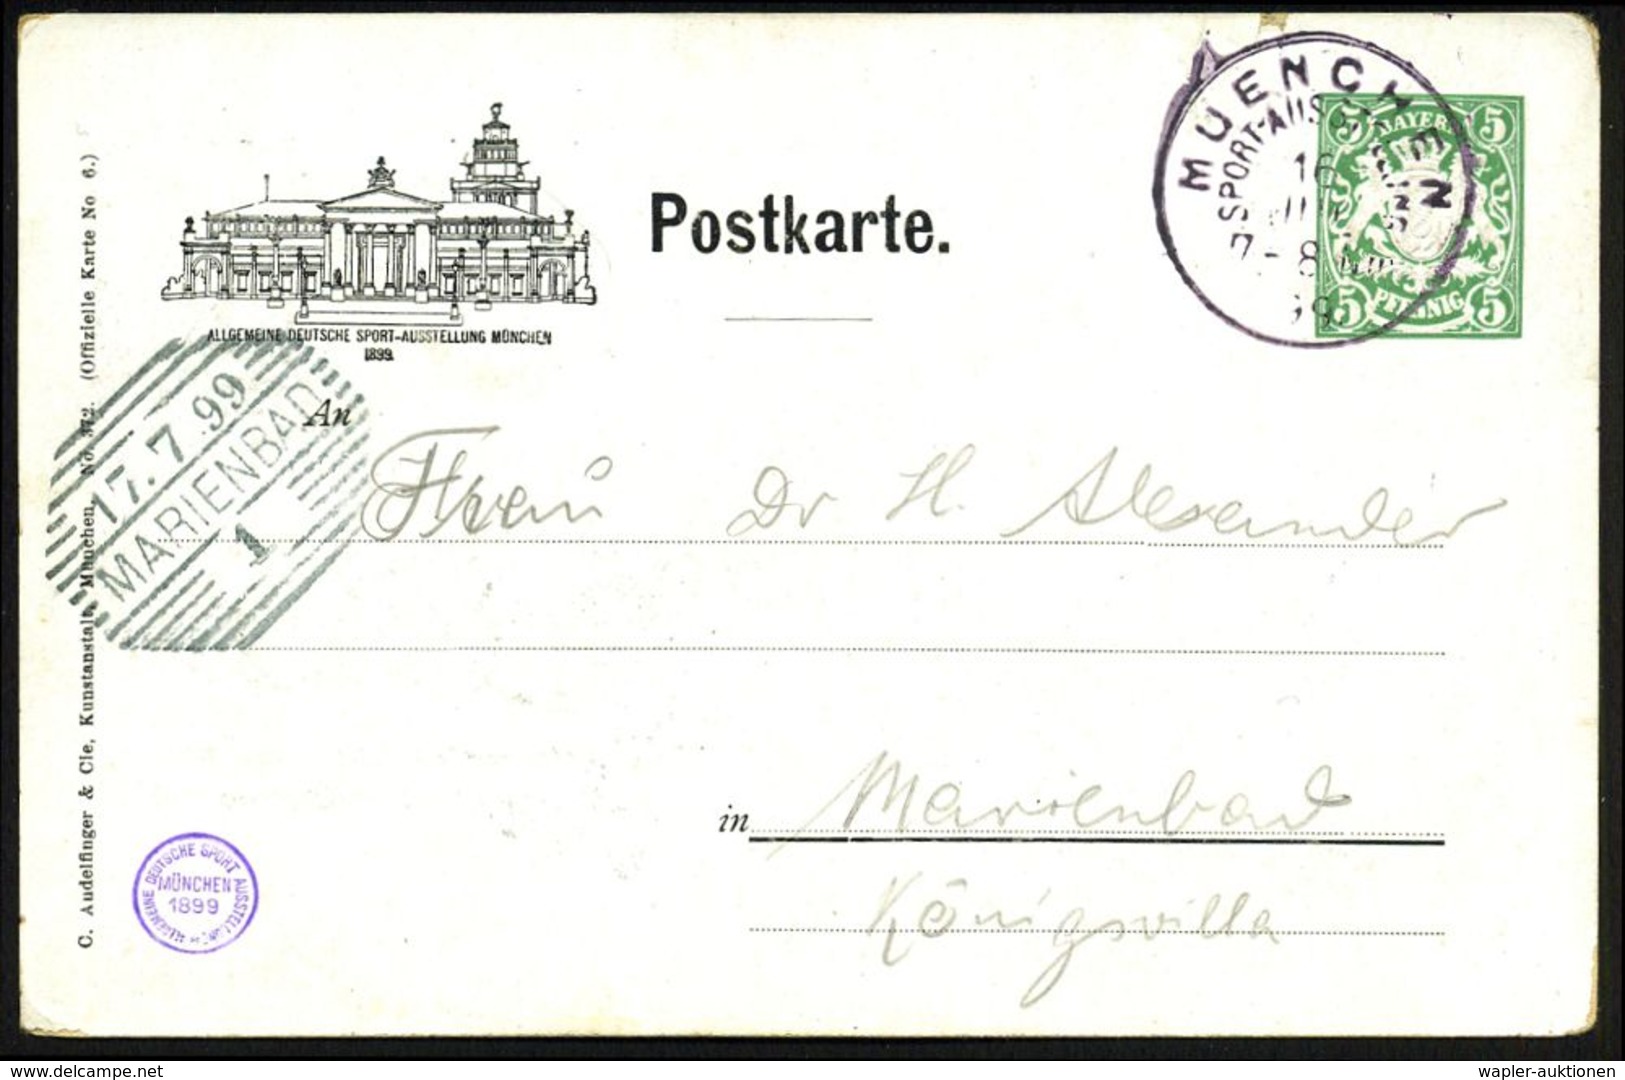 MUENCHEN
SPORT-AUSST
16
7-8
BAYERN
5 5
5 PFENNIG 5
Postkarte.
ALLGEMEINE DEUTSCHE SPORT-AUSSTELLUNG MÜNCHEN
1899.
17.7.99
MARIENBAD
1
An
Frau Dr H. Alexander
in Marienbad
Königsvilla
ALLGEMEINE DEUTSCHE SPORT AUSSTELLUNG
MÜNCHEN
1899
C. Audelfinger & Cie, Kunstanstalt, München, No. 372. (Offizielle Karte No 6.)
wapler-auktionen
www.delcampe.net